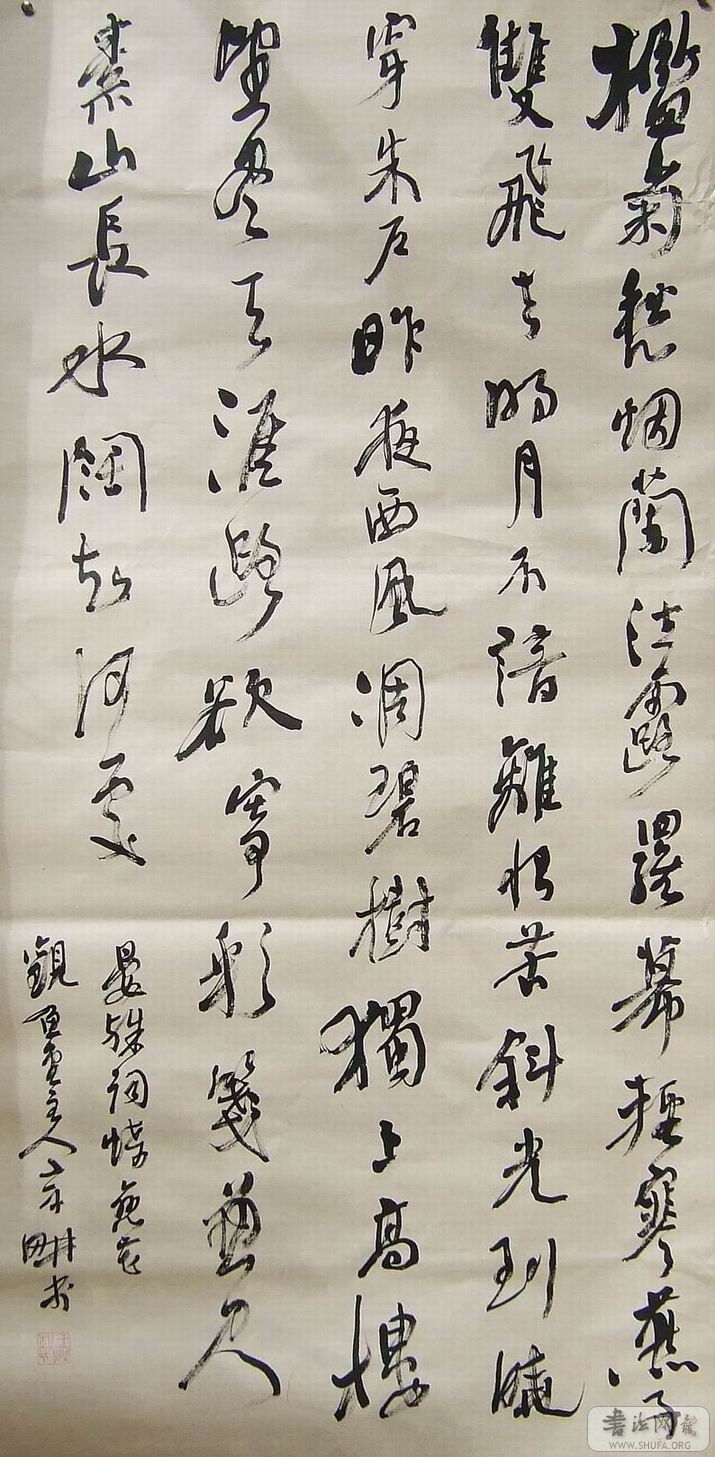 檻菊愁烟蘭泣露羅幕輕寒燕子
雙飛去明月不諳離恨苦斜光到曉
穿朱戶昨夜西風凋碧樹獨上高樓
望尽天涯路欲寄彩箋兼尺
素山長水闊知何處
晏殊詞蝶戀花
觀魚堂主人畊書
書法网
WWW.SHUFA.ORG